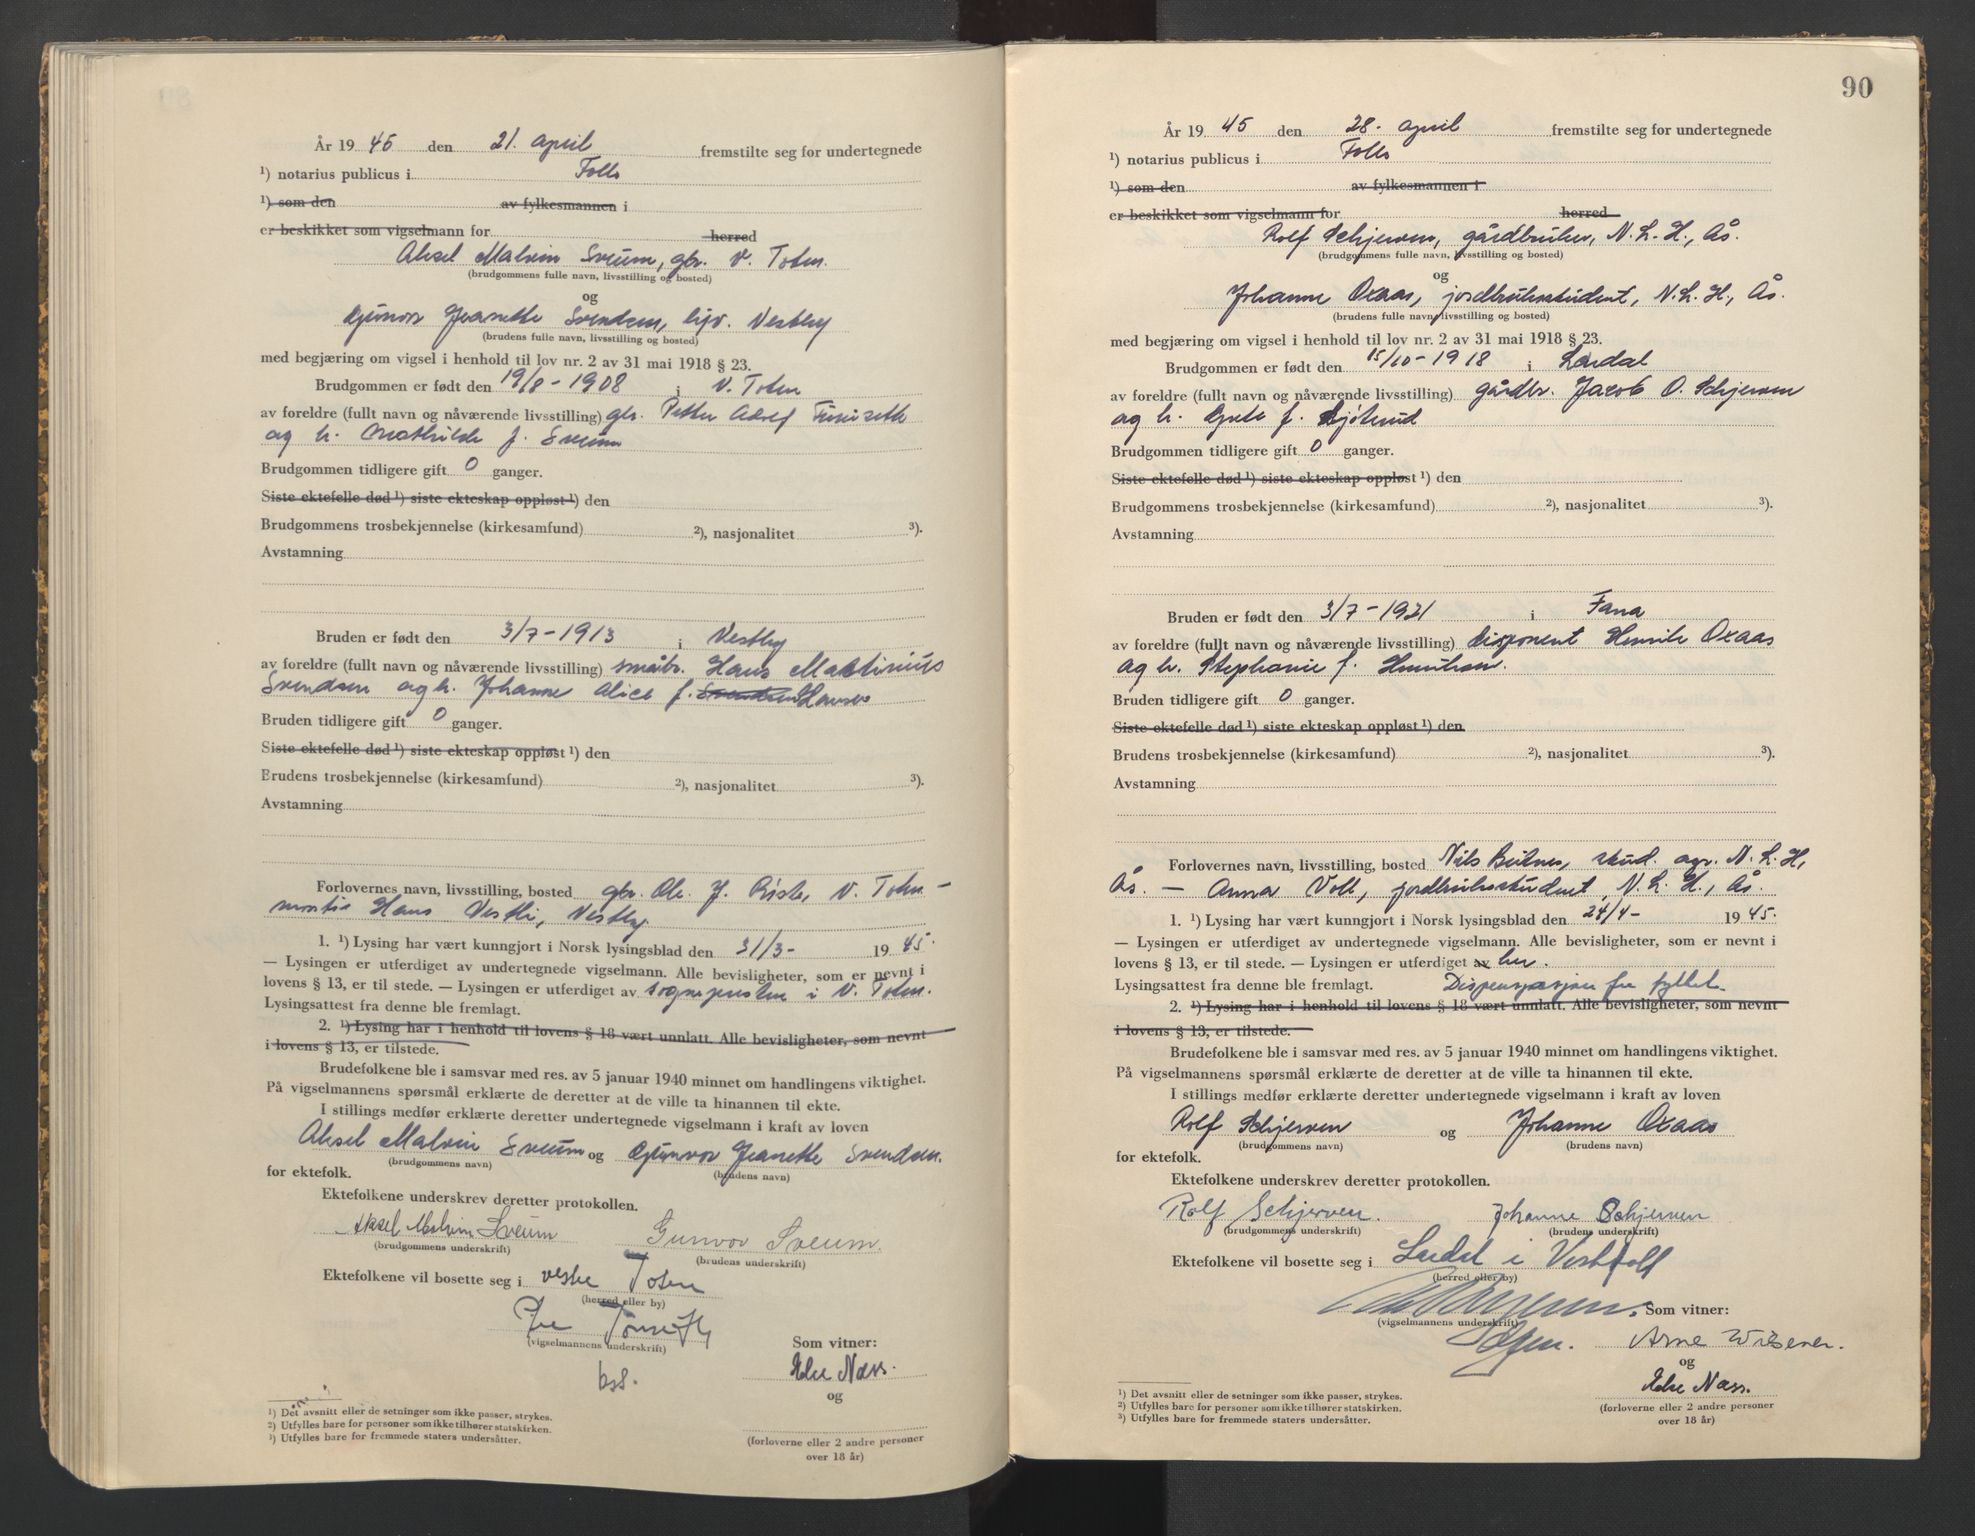 År 19 45 den 21. april fremstilte seg for undertegnede
¹) notarius publicus i Follo
¹) som den av fylkesmannen i
er beskikket som vigselmann for herred
Aksel Malvin Sveum, gbr. V. Toten.
(brudgommens fulle navn, livsstilling og bosted)
og
Gunvor Jeanette Svendsen, Vestby
(brudens fulle navn, livsstilling og bosted)
med begjæring om vigsel i henhold til lov nr. 2 av 31 mai 1918 § 23.
Brudgommen er født den 19/8 - 1908 i V. Toten
av foreldre (fullt navn og nåværende livsstilling) gbr. Petter
og h. Mathilde f. Sveum
Brudgommen tidligere gift 0 ganger.
Siste ektefelle død ¹) siste ekteskap oppløst ¹) den
Brudgommens trosbekjennelse (kirkesamfund) ²), nasjonalitet ³).
Avstamning
Bruden er født den 3/7 - 1913 i Vestby
av foreldre (fullt navn og nåværende livsstilling) småbr. Hans Martinius
Svendsen og h. Johanne Alice f. Svendsen Hansen
Bruden tidligere gift 0 ganger.
Siste ektefelle død ¹) siste ekteskap oppløst ¹) den
Brudens trosbekjennelse (kirkesamfund) ²), nasjonalitet ³).
Avstamning
Forlovernes navn, livsstilling, bosted gbr. Ole J. V. Toten -
Hans Vestli, Vestby
1. ¹) Lysing har vært kunngjort i Norsk lysingsblad den 31/3 - 19 45.
— Lysingen er utferdiget av undertegnede vigselmann. Alle bevisligheter, som er nevnt i
lovens § 13, er til stede. — Lysingen er utferdiget av sognepresten i V. Toten.
Lysingsattest fra denne ble fremlagt.
2. ¹) Lysing har i henhold til lovens § 18 vært unnlatt. Alle bevisligheter, som nevnt
i lovens § 13, er tilstede.
Brudefolkene ble i samsvar med res. av 5 januar 1940 minnet om handlingens viktighet.
På vigselmannens spørsmål erklærte de deretter at de ville ta hinannen til ekte.
I stillings medfør erklærte deretter undertegnede vigselmann i kraft av loven
Aksel Malvin Sveum og Gunvor Jeanette Svendsen.
(brudgommens navn) (brudens navn)
for ektefolk.
Ektefolkene underskrev deretter protokollen.
Aksel Malvin Sveum Gunvor Sveum.
(brudgommens underskrift) (brudens underskrift)
Ektefolkene vil bosette seg i vestre Toten
(herred eller by)
(vigselmannens underskrift) Som vitner:
Næss.
og
¹) Det avsnitt eller de setninger som ikke passer, strykes.
²) Utfylles bare for personer som ikke tilhører statskirken.
³) Utfylles bare for fremmede staters undersåtter.
(forloverne eller 2 andre personer
over 18 år)
90
År 19 45 den 28. april fremstilte seg for undertegnede
¹) notarius publicus i Follo
¹) som den av fylkesmannen i
er beskikket som vigselmann for herred
Rolf Schjerven, gårdbruker, N. L. H., Ås.
(brudgommens fulle navn, livsstilling og bosted)
og
Johanne Oxaas, jordbruksstudent, N. L. H., Ås.
(brudens fulle navn, livsstilling og bosted)
med begjæring om vigsel i henhold til lov nr. 2 av 31 mai 1918 § 23.
Brudgommen er født den 15/10 - 1918 i Lardal
av foreldre (fullt navn og nåværende livsstilling) gårdbr. Jacob O. Schjerven
og h. f.
Brudgommen tidligere gift 0 ganger.
Siste ektefelle død ¹) siste ekteskap oppløst ¹) den
Brudgommens trosbekjennelse (kirkesamfund) ²), nasjonalitet ³).
Avstamning
Bruden er født den 3/7 - 1921 i Fana
av foreldre (fullt navn og nåværende livsstilling) disponent Henrik Oxaas
og h. Stephanie f. Henriksen.
Bruden tidligere gift 0 ganger.
Siste ektefelle død ¹) siste ekteskap oppløst ¹) den
Brudens trosbekjennelse (kirkesamfund) ²), nasjonalitet ³).
Avstamning
Forlovernes navn, livsstilling, bosted Nils stud. agr. N. L. H,
Ås. — Anna Voll, jordbruksstudent, N. L. H., Ås.
1. ¹) Lysing har vært kunngjort i Norsk lysingsblad den 24/4 - 19 45.
— Lysingen er utferdiget av undertegnede vigselmann. Alle bevisligheter, som er nevnt i
lovens § 13, er til stede. — Lysingen er utferdiget av her.
Lysingsattest fra denne ble fremlagt. Dispensasjon fra fylket.
2. ¹) Lysing har i henhold til lovens § 18 vært unnlatt. Alle bevisligheter, som nevnt
i lovens § 13, er tilstede.
Brudefolkene ble i samsvar med res. av 5 januar 1940 minnet om handlingens viktighet.
På vigselmannens spørsmål erklærte de deretter at de ville ta hinannen til ekte.
I stillings medfør erklærte deretter undertegnede vigselmann i kraft av loven
Rolf Schjerven og Johanne Oxaas
(brudgommens navn) (brudens navn)
for ektefolk.
Ektefolkene underskrev deretter protokollen.
Rolf Schjerven. Johanne Schjerven
(brudgommens underskrift) (brudens underskrift)
Ektefolkene vil bosette seg i Lardal i Vestfold
(herred eller by)
Som vitner:
(vigselmannens underskrift)
Arne
og
Næss.
¹) Det avsnitt eller de setninger som ikke passer, strykes.
²) Utfylles bare for personer som ikke tilhører statskirken.
³) Utfylles bare for fremmede staters undersåtter.
(forloverne eller 2 andre personer
over 18 år)